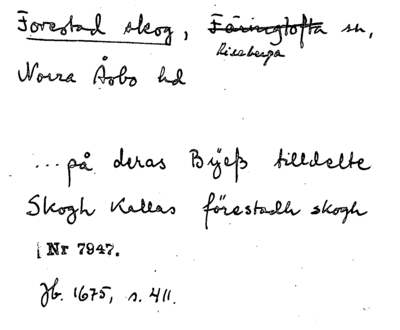 Forestad skog, Färingtofta sn,
Riseberga
Norra Åsbo hd
...på deras Bÿeß tilldelte
Skogh Kallas förestadh skogh
Nr 7947.
Jb. 1675, s. 411.